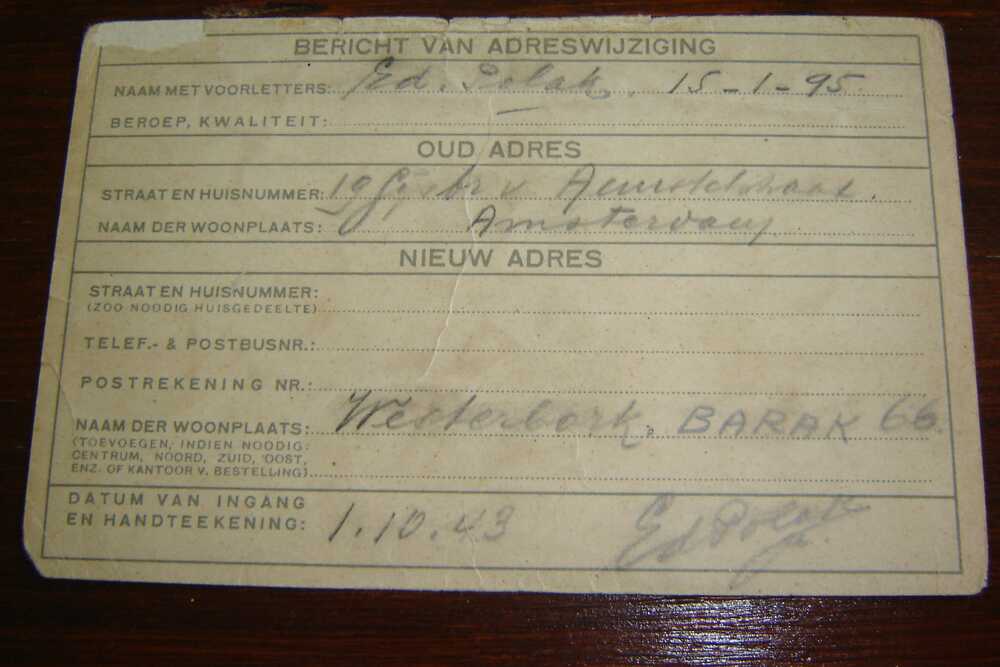 BERICHT VAN ADRESWIJZIGING
NAAM MET VOORLETTERS: Ed. Polak. 15-1-95.
BEROEP, KWALITEIT:
OUD ADRES
STRAAT EN HUISNUMMER: 19 Gijsbr v Aemstelstraat.
NAAM DER WOONPLAATS: Amsterdam
NIEUW ADRES
STRAAT EN HUISNUMMER:
(ZOO NOODIG HUISGEDEELTE)
TELEF.- & POSTBUSNR.:
POSTREKENING NR.:
NAAM DER WOONPLAATS: Westerbork. BARAK 66.
(TOEVOEGEN, INDIEN NOODIG:
CENTRUM, NOORD, ZUID, OOST,
ENZ. OF KANTOOR V. BESTELLING)
DATUM VAN INGANG
EN HANDTEEKENING: 1.10.43 Ed Polak